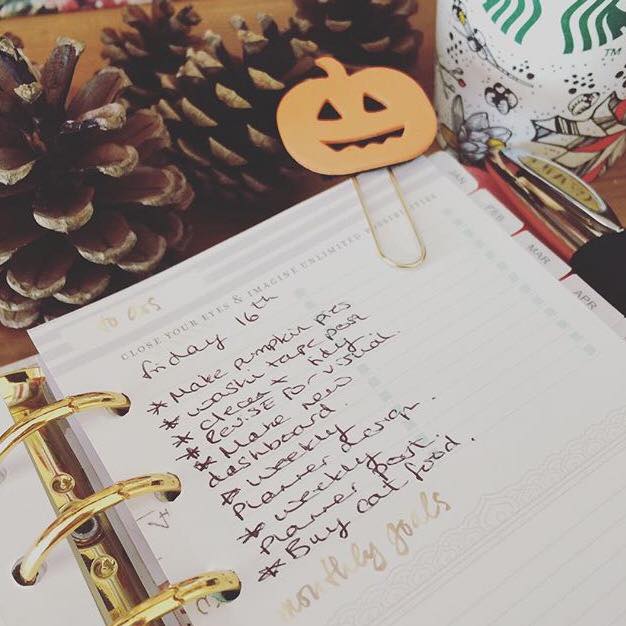 TM
JAN
FEB
MAR
APR
to dos
CLOSE YOUR EYES & IMAGINE UNLIMITED POSSIBILITIES
friday 16th
* Make pumpkin pies
* washi tape post
* clean & tidy
* Revise for visual.
* Make new
dashboard
* weekly
planner design.
* weekly
planner post
* Buy cat food.
monthly goals